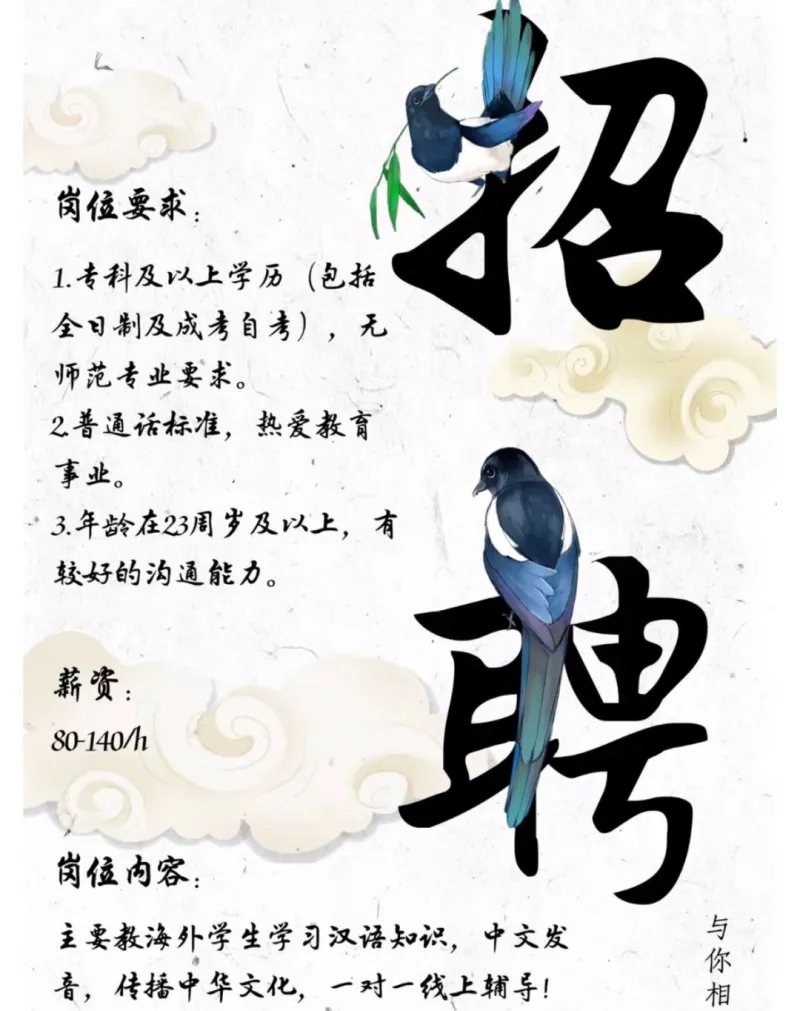 招聘
岗位要求：
1.专科及以上学历（包括
全日制及成考自考），无
师范专业要求。
2.普通话标准，热爱教育
事业。
3.年龄在23周岁及以上，有
较好的沟通能力。
薪资：
80-140/h
岗位内容：
主要教海外学生学习汉语知识，中文发
音，传播中华文化，一对一线上辅导！
与你相